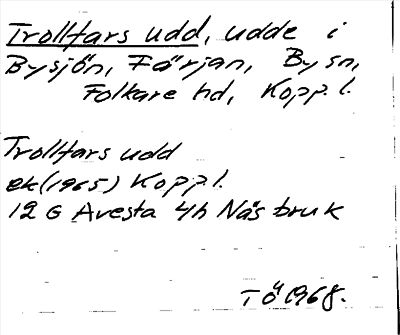 Trollfars udd, udde i
Bysjön, Färjan, By sn,
Folkare hd, Kopp.l.
Trollfars udd
ek (1965) Kopp l.
12 G Avesta 4h Näs bruk
T Ö 1968.